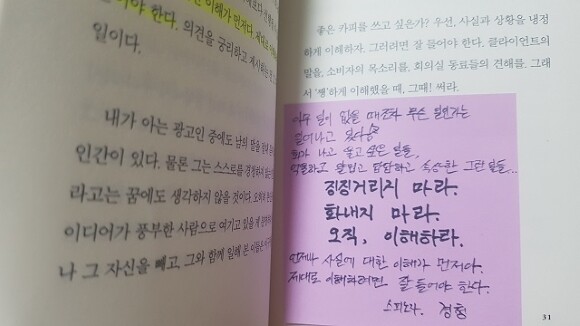 이해가 먼저다.
어야 한다. 의견을 궁리하고 제시하는
일이다.
내가 아는 광고인 중에도 남의 말을
인간이 있다. 물론 그는 스스로를
라고는 꿈에도 생각하지 않을 것이다.
이디어가 풍부한 사람으로 여기고 있을
나 그 자신을 빼고, 그와 함께 일해 본
좋은 카피를 쓰고 싶은가? 우선, 사실과 상황을 냉정
하게 이해하자. 그러려면 잘 들어야 한다. 클라이언트의
말을, 소비자의 목소리를, 회의실 동료들의 견해를. 그래
서 '쨍'하게 이해했을 때, 그때! 써라.
아무 일이 없을 때조차 무슨 일인가는
일어나고 있다
화가 나고 울고 싶은 일들,
억울하고 답답하고 속상한 그런 일들...
징징거리지 마라.
화내지 마라.
오직, 이해하라.
언제나 사실에 대한 이해가 먼저다.
제대로 이해하려면 잘 들어야 한다.
스피노자.
31